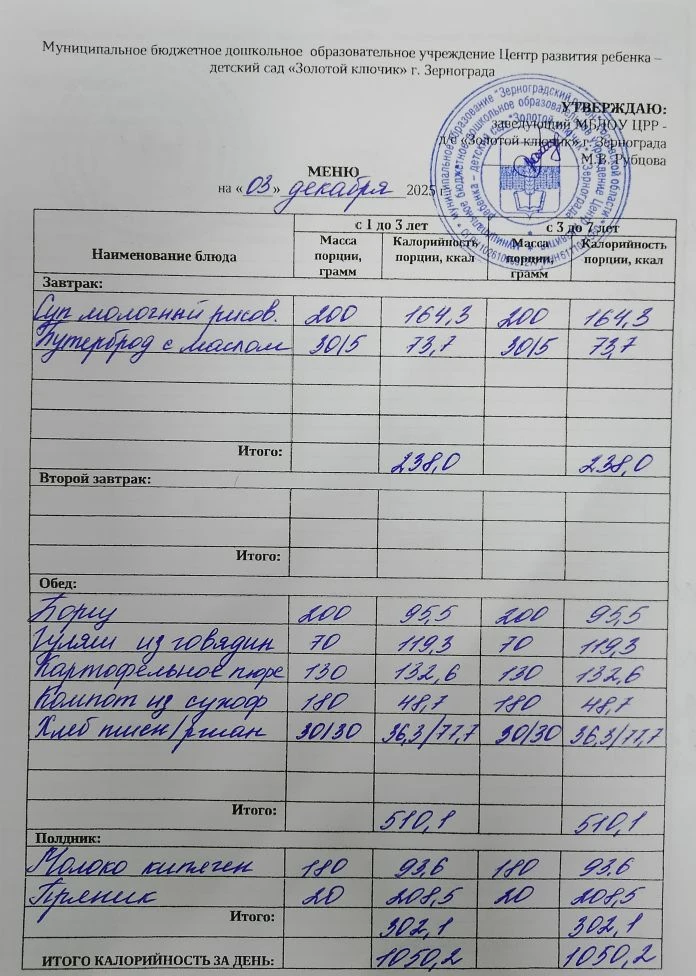 Муниципальное бюджетное дошкольное образовательное учреждение Центр развития ребенка –
детский сад «Золотой ключик» г. Зернограда
УТВЕРЖДАЮ:
заведующий МБДОУ ЦРР -
д/с «Золотой ключик» г. Зернограда
М.В. Рубцова
МЕНЮ
на «03» декабря 2025 г.
Наименование блюда с 1 до 3 лет с 3 до 7 лет
Масса порции, грамм Калорийность порции, ккал Масса порции, грамм Калорийность порции, ккал
Завтрак:
Суп молочный рисов. 200 164,3 200 164,3
Бутерброд с маслом 30/5 73,7 30/5 73,7
Итого: 238,0 238,0
Второй завтрак:
Итого:
Обед:
Борщ 200 95,5 200 95,5
Гуляш из говядин 70 119,3 70 119,3
Картофельное пюре 130 132,6 130 132,6
Компот из сухоф 180 48,7 180 48,7
Хлеб пшен/ржан 30/30 36,3/77,7 30/30 36,3/77,7
Итого: 510,1 510,1
Полдник:
Молоко кипячен 180 93,6 180 93,6
Пряник 20 208,5 20 208,5
Итого: 302,1 302,1
ИТОГО КАЛОРИЙНОСТЬ ЗА ДЕНЬ: 1050,2 1050,2